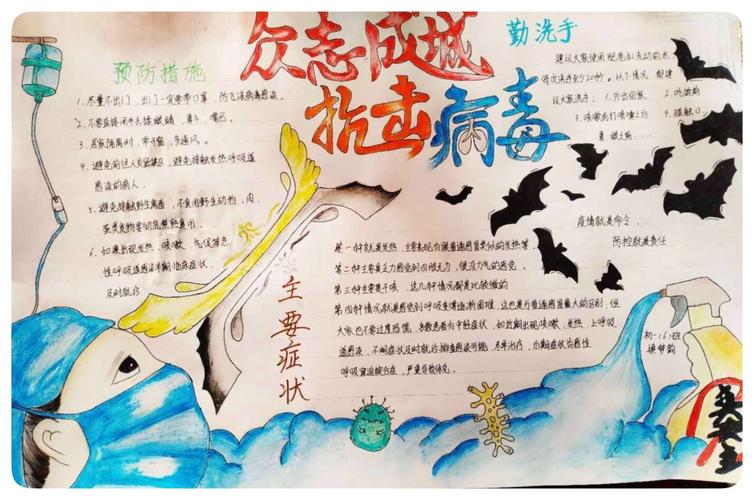 众志成城
抗击病毒
预防措施
1、尽量不出门，出门一定要带口罩，防飞沫病毒感染。
2、不要直接用手去揉眼睛、鼻子、嘴巴。
3、居家隔离时，常开窗，多通风。
4、避免前往人员密集区，避免接触发热呼吸道
感染的病人。
5、避免接触野生禽畜，不食用野生动物，肉、
蛋类食物要彻底煮熟食用。
6、如果出现发热、咳嗽、气促等急
性呼吸道感染早期临床症状，
及时就诊
勤洗手
建议大家使用肥皂和流动的水
每次洗手至少20秒。以下情况
议大家洗手：1、外出回家 2、吃饭前
3、咳嗽或打喷嚏之后 4、接触口
鼻 眼之前
疫情就是命令，
防控就是责任
主要症状
第一种就是发热，主要表现为跟普通感冒类似的发热等
第二种主要是乏力感觉到四肢无力，很没力气的感觉
第三种主要是干咳，这几种情况都是比较微的
第四种情况就是感觉到呼吸变得逐渐困难，这也是与普通感冒最大的区别，但
大家也不要过度恐慌，多数患者为中轻症状，如近期出现咳嗽、发热、上呼吸
道感染，不耐症状及时就诊排查感染可能，尽早治疗，后期症状为急性
呼吸窘迫综合症，严重导致休克。
初一(6)班